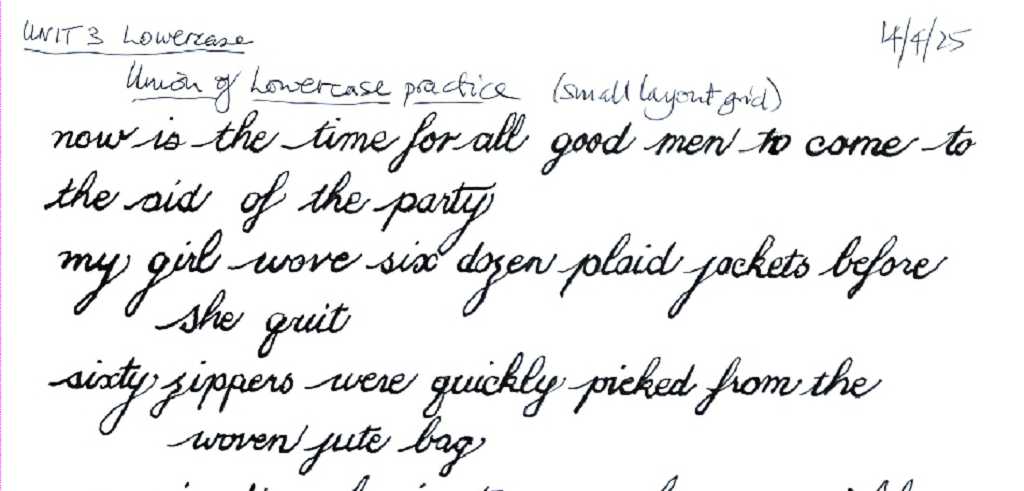 UNIT 3 Lowercase
4/4/25
Union of Lowercase practice (small layout grid)
now is the time for all good men to come to
the aid of the party
my girl wove six dozen plaid jackets before
she quit
sixty zippers were quickly picked from the
woven jute bag